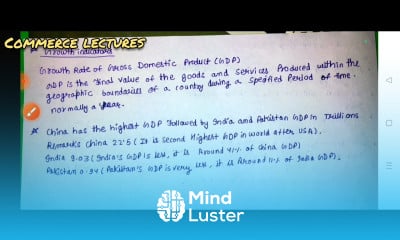 COMMERCE LECTURES
Growth indicators
Growth Rate of Gross Domestic Product (GDP)
GDP is the final value of the goods and services Produced within the
geographic boundaries of a country during a specified Period of time.
normally a year.
China has the highest GDP followed by India and Pakistan GDP in Trillions
Remarks China 22.5 (It is second Highest GDP in world after USA).
India 9.03 (India's GDP is less, it is Around 41% of China GDP)
Pakistan 0.94 (Pakistan's GDP is very less, it is Around 11% of India GDP).
Mind
Luster